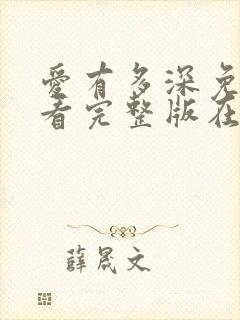 愛有多深免
看完整版在
薛晟文